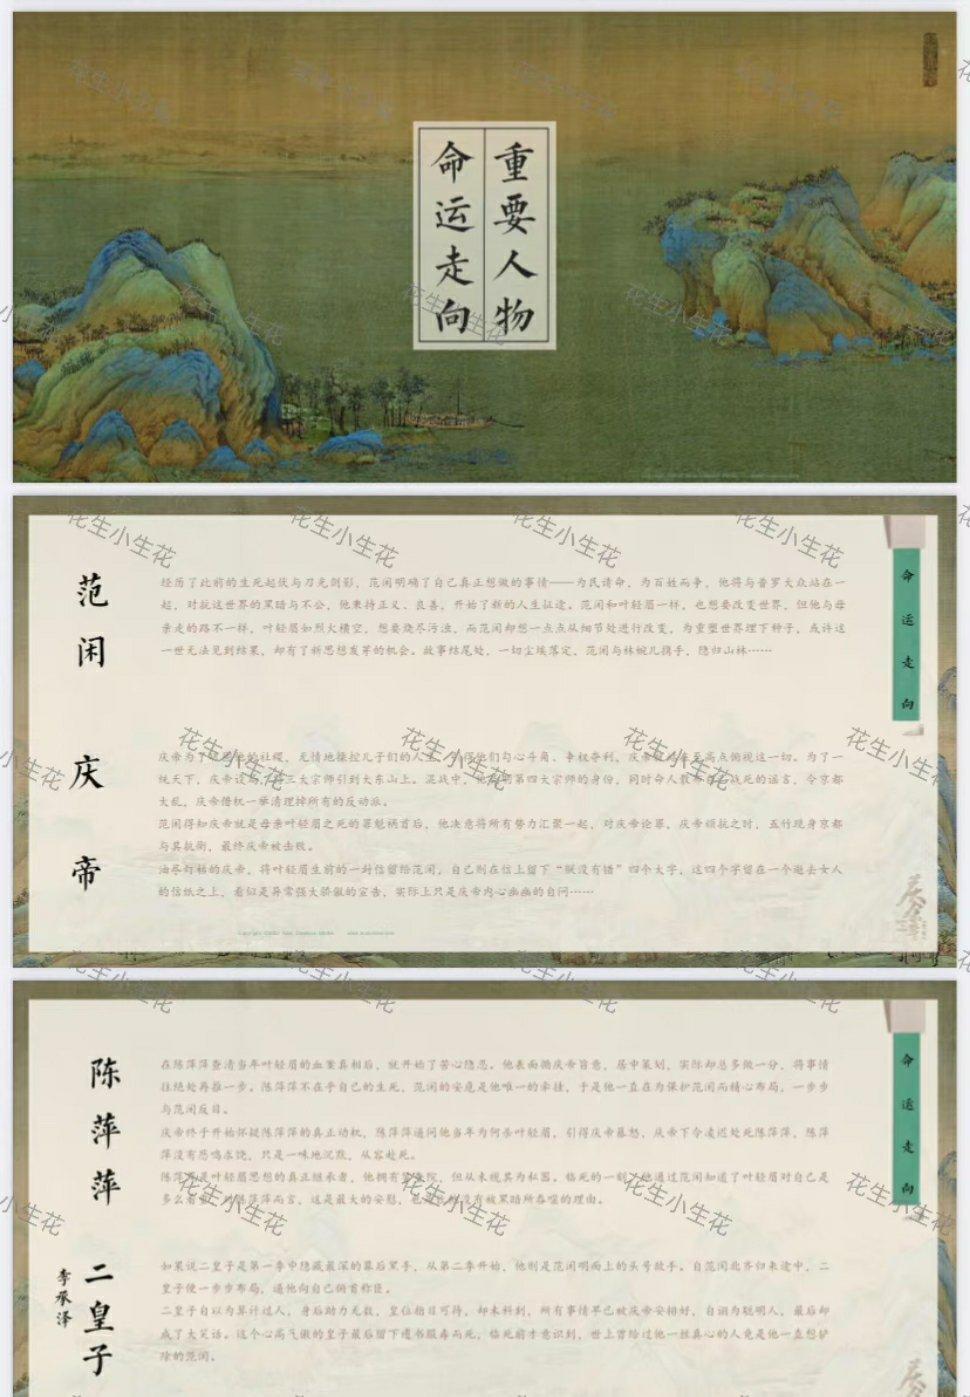 重要人物
命运走向
花生小生花
范闲
经历了此前的生死起伏与刀光剑影，范闲明确了自己真正想做的事情——为民请命、为百姓而争，他将与普罗大众站在一
起，对抗这世界的黑暗与不公，他秉持正义、良善，开始了新的人生征途。范闲和叶轻眉一样，也想要改变世界，但他与母
亲走的路不一样，叶轻眉如烈火横空，想要烧尽污浊，而范闲却想一点点从细节处进行改变，为重塑世界埋下种子，或许这
一世无法见到结果，却有了新思想发芽的机会。故事结尾处，一切尘埃落定，范闲与林婉儿携手，隐归山林……
命运走向
庆帝
庆帝为了 的社稷，无情地操控儿子们的人生， 得他们勾心斗角、争权夺利，庆帝 至高点俯视这一切。为了一
统天下，庆帝设 三大宗师引到大东山上。混战中， 第四大宗师的身份，同时命人散布 战死的谣言，令京都
大乱，庆帝借机一举清理掉所有的反动派。
范闲得知庆帝就是母亲叶轻眉之死的罪魁祸首后，他决意将所有势力汇聚一起，对庆帝论罪，庆帝顽抗之时，五竹现身京都
与其抗衡，最终庆帝被击败。
油尽灯枯的庆帝，将叶轻眉生前的一封信留给范闲，自己则在信上留下“朕没有错”四个大字，这四个字留在一个逝去女人
的信纸之上，看似是异常强大骄傲的宣告，实际上只是庆帝内心幽幽的自问……
陈萍萍
在陈萍萍查清当年叶轻眉的血案真相后，就开始了苦心隐忍。他表面循庆帝旨意，居中策划，实际却总多做一分，将事情
往绝处再推一步。陈萍萍不在乎自己的生死，范闲的安危是他唯一的牵挂，于是他一直在为保护范闲而精心布局，一步步
与范闲反目。
庆帝终于开始怀疑陈萍萍的真正动机，陈萍萍逼问他当年为何杀叶轻眉，引得庆帝暴怒，庆帝下令凌迟处死陈萍萍，陈萍
萍没有悲鸣求饶，只是一味地沉默，从容赴死。
陈萍萍是叶轻眉思想的真正继承者，他拥有监察院，但从未视其为私器。临死的一刻，他通过范闲知道了叶轻眉对自己是
多么 陈萍萍而言，这是最大的安慰，也是 没有被黑暗所吞噬的理由。
命运走向
二皇子
李承泽
如果说二皇子是第一季中隐藏最深的幕后黑手，从第二季开始，他则是范闲明面上的头号敌手。自范闲北齐归来途中，二
皇子便一步步布局，逼他向自己俯首称臣。
二皇子自以为算计过人，身后助力无数，皇位指日可待，却未料到，所有事情早已被庆帝安排好，自诩为聪明人，最后却
成了大笑话。这个心高气傲的皇子最后留下遗书服毒而死，临死前才意识到，世上曾给过他一丝真心的人竟是他一直想铲
除的范闲。